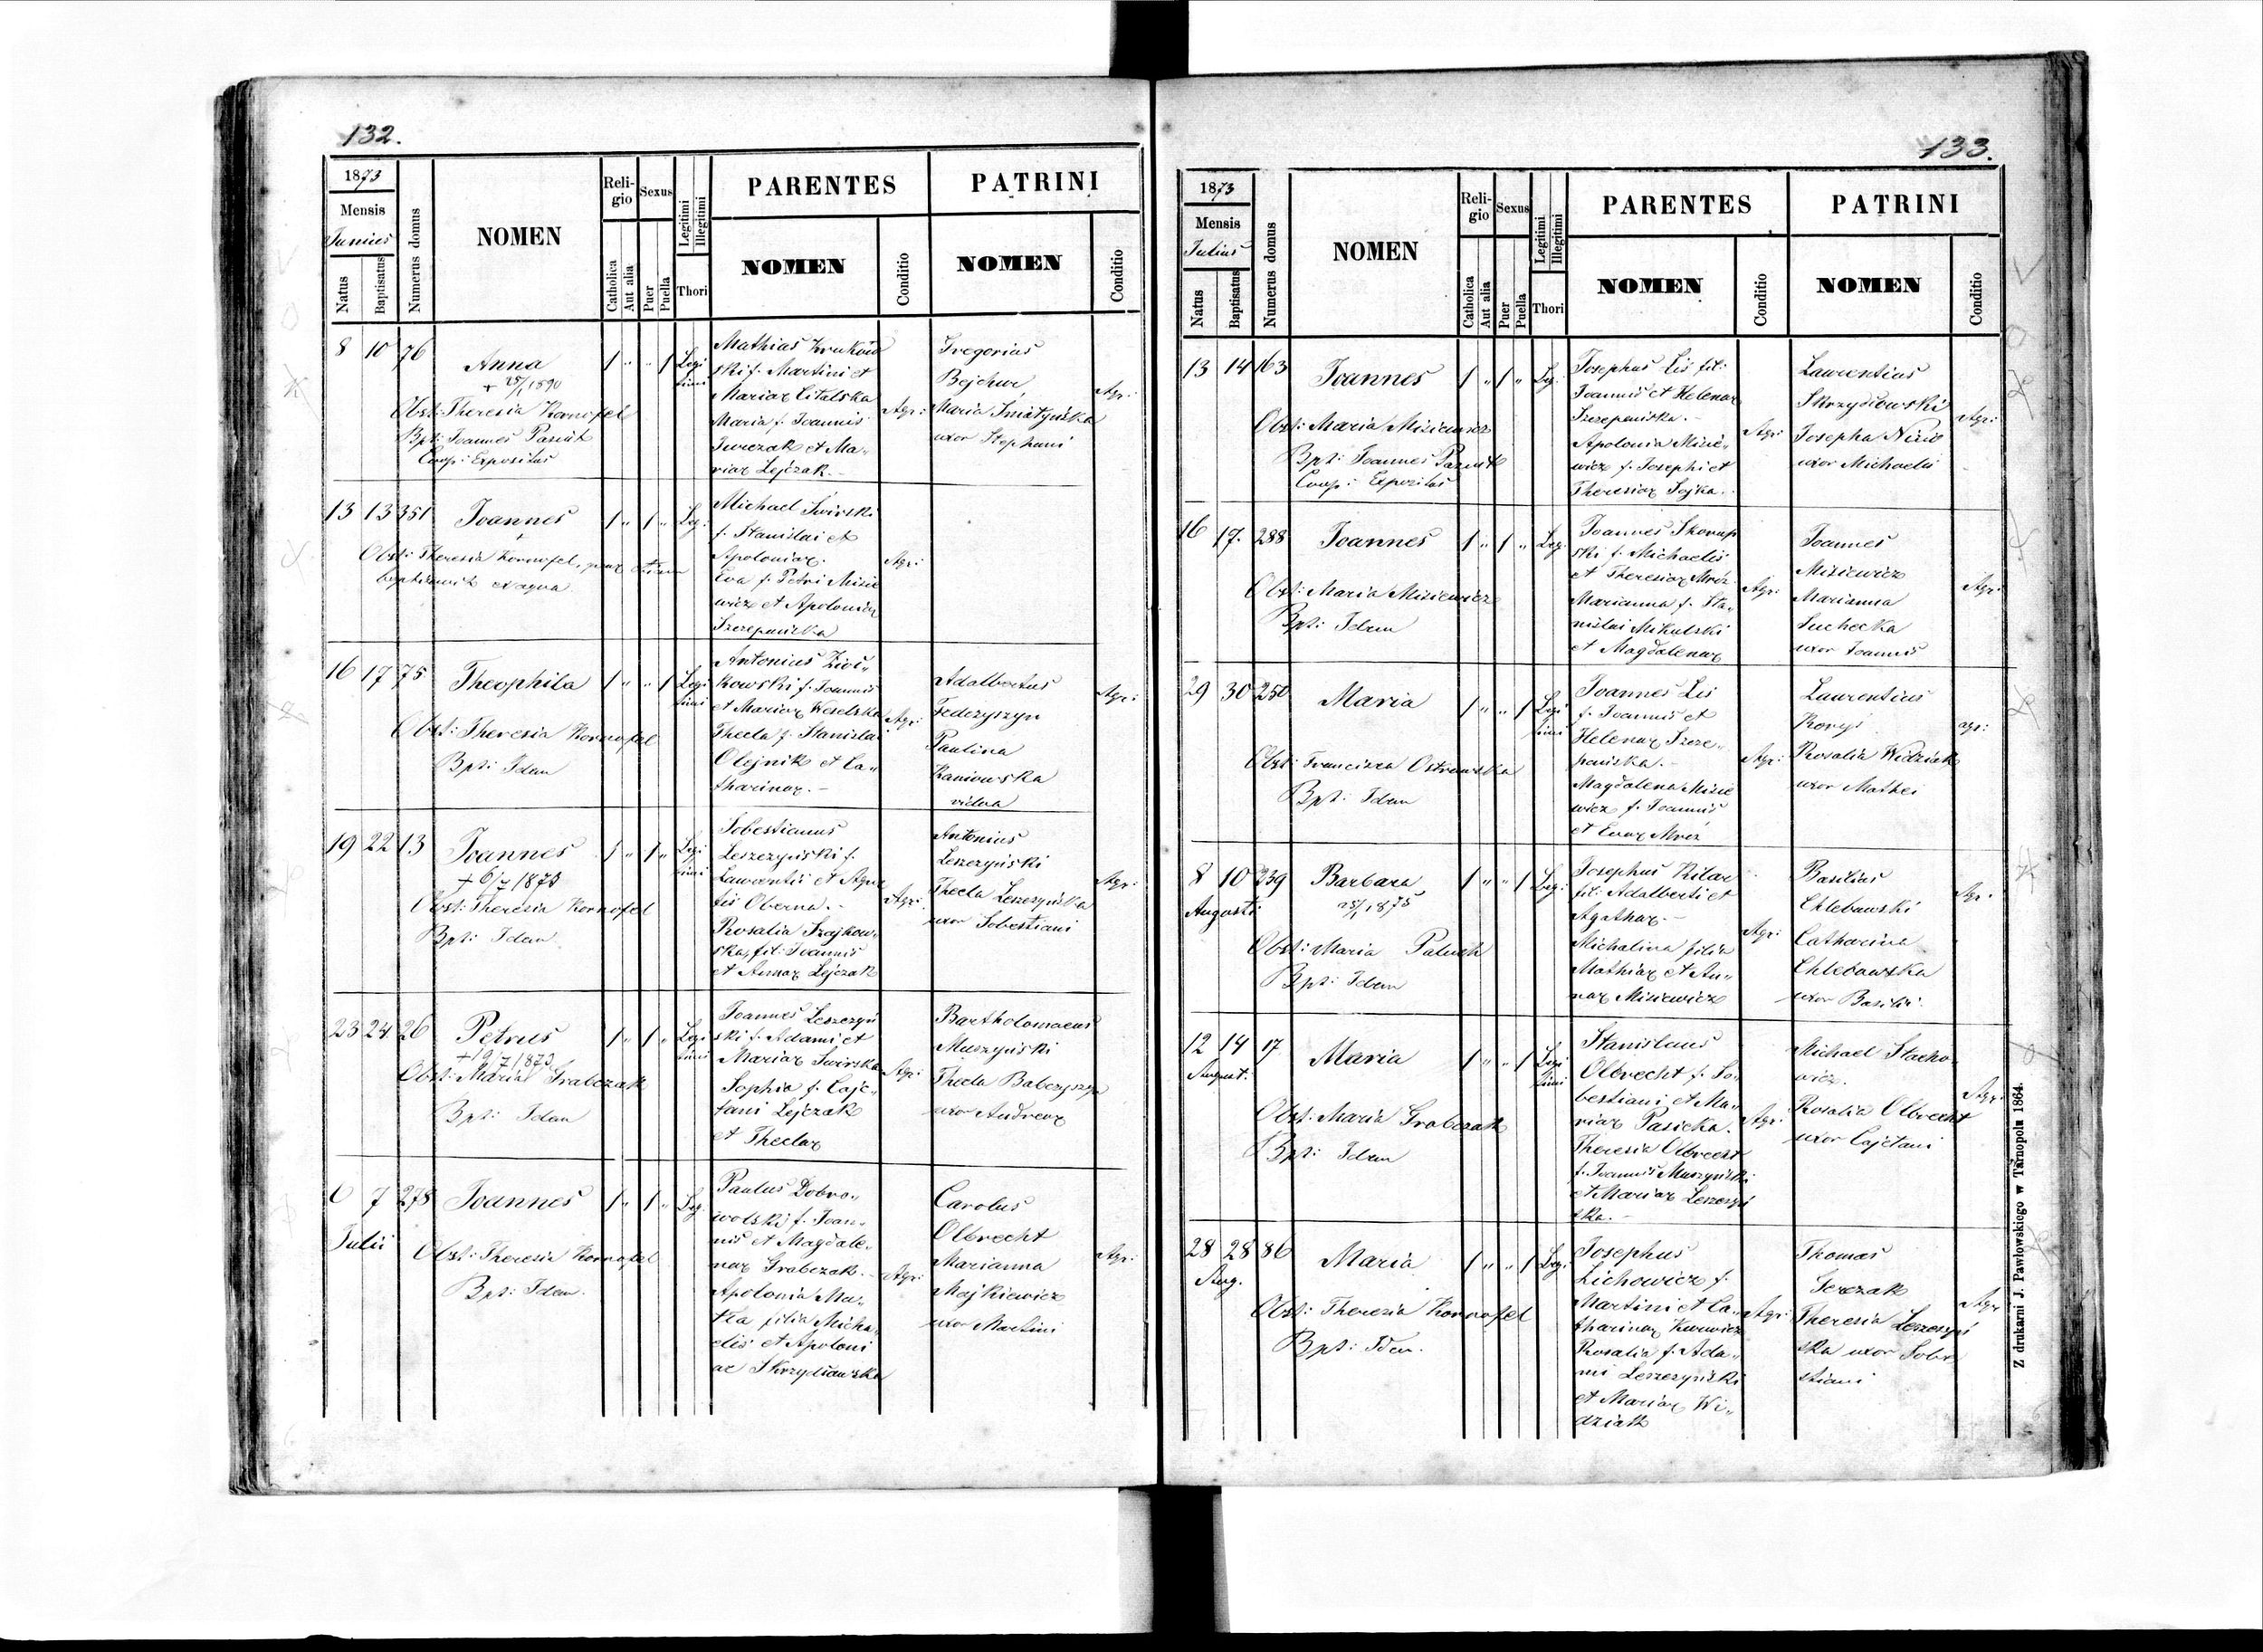 132.
1873
Mensis
Junius
Natus
Baptisatus
Numerus domus
NOMEN
Reli-
gio
Catholica
Aut alia
Sexus
Puer
Puella
Legitimi
Illegitimi
Thori
PARENTES
NOMEN
Conditio
PATRINI
NOMEN
Conditio
8 10 76
Anna
+ 25/1 1890
Obst: Theresia Kornofel
Bpt: Joannes Paziuk
Coop: Expositus
1 " " 1
Legi
timi
Mathias Kruków
ski f. Martini et
Mariae Citalska
Maria f. Joannis
Jurczak et Ma„
riae Lejczak.-
Agr:
Gregorius
Bejchur
Maria Śniatyńska
uxor Stephani
Agr:
13 13 351
Joannes
+
Obst: Theresia Kornofel, quae etiam
baptisavit ex aqua
1 " 1 "
Leg:
Michael Świrski
f. Stanislai et
Apoloniae.
Eva f. Petri Mizie
wicz et Apolonia
Szczepańska
Agr:
16 17 75
Theophila
Obst: Theresia Kornofel
Bpt: Idem
1 " " 1
Legi
timi
Antonius
kowski f. Joannis
et Mariae Weselska
Thecla f. Stanislai
Olejnik et Ca„
tharinae.-
Agr:
Adalbertus
Fedczyszyn
Paulina
Kaniowska
vidua
Agr:
19 22 13
Joannes
+ 6/7 1873
Obst: Theresia Kornofel
Bpt: Idem
1 " 1 "
Legi
timi
Sobestianus
Leszczyński f.
Laurentii et Agne
tis Oberna.-
Rosalia Szajkow„
ska, fil: Joannis
et Annae Lejczak
Agr:
Antonius
Leszczyński
Thecla Leszczyńska
uxor Sobestiani
Agr:
23 24 26
Petrus
+ 19/7 1873
Obst: Maria Grabczak
Bpt: Idem
1 " 1 "
Legi
timi
Joannes Leszczyń
ski f. Adami et
Mariae Świrska
Sophia f. Caje„
tani Lejczak
et Theclae
Agr:
Bartholomaeus
Muszyński
Thecla Babczyszyn
uxor Andreae
6 7 278
Julii
Joannes
Obst: Theresia Kornofel
Bpt: Idem.
1 " 1 "
Leg.
Paulus Dobro„
wolski f. Joan„
nis et Magdale„
nae Grabczak.-
Apolonia Ma„
tla filia Micha„
elis et Apoloni
ae Skrzydłowska
Agr:
Carolus
Olbrecht
Marianna
Majkiewicz
uxor Martini
Agr:
133.
1873
Mensis
Julius
Natus
Baptisatus
Numerus domus
NOMEN
Reli-
gio
Catholica
Aut alia
Sexus
Puer
Puella
Legitimi
Illegitimi
Thori
PARENTES
NOMEN
Conditio
PATRINI
NOMEN
Conditio
13 14 163
Joannes
Obst: Maria Miziewicz
Bpt: Joannes Paziuk
Coop: Expositus
1 " 1 "
Leg:
Josephus Lis fil:
Joannis et Helenae
Szczepańska.-
Apolonia Mizie„
wicz f. Josephi et
Theresiae Sojka.
Agr:
Laurentius
Skrzydłowski
Josepha Nizio
uxor Michaelis
Agr:
16 17. 288
Joannes
Obst: Maria Miziewicz
Bpt: Idem
1 " 1 "
Leg.
Joannes Skorup
ski f. Michaelis
et Theresiae Mróz
Marianna f. Sta„
nislai Mikulski
et Magdalenae
Agr:
Joannes
Miziewicz
Marianna
Suchecka
uxor Joannis
Agr:
29 30 250
Maria
Obst: Francisca Ostrowska
Bpt: Idem
1 " " 1
Legi
timi
Joannes Lis
f. Joannis et
Helenae Szcze„
pańska.-
Magdalena Mizie
wicz f. Joannis
et Evae Mróz
Agr:
Laurentius
Koryś
Rosalia Widziak
uxor Mathei
agr:
8 10 239
Augusti
Barbara
25/1 1875
Obst: Maria Paluch
Bpt: Idem
1 " " 1
Leg:
Josephus Kilar
fil: Adalberti et
Agathae.-
Michalina filia
Mathiae et An„
nae Miziewicz
Agr:
Basilius
Chlebowski
Catharina
Chlebowska
uxor Basilii.
Agr.
12 14 17
August.
Maria
Obst: Maria Grabczak
Bpt: Idem
1 " " 1
Legi
timi
Stanislaus
Olbrecht f. So„
bestiani et Ma„
riae Pasicka.
Theresia Olbrecht
f. Joannis Muszyński
et Mariae Leszczyń
ska.-
Agr:
Michael Stacho„
wicz.
Rosalia Olbrecht
uxor Cajetani
Agr:
28 28 86
Aug.
Maria
Obst: Theresia Kornofel
Bpt: Idem.
1 " " 1
Leg.
Josephus
Lichowicz f.
Martini et Ca„
tharinae Kurowicz
Rosalia f. Ada„
mi Leszczyński
et Mariae Wi„
dziak
Agr:
Thomas
Serczak
Theresia Leszczyń
ska uxor Sobe
stiani
Agr
Z drukarni J. Pawłowskiego w Tarnopolu 1864.